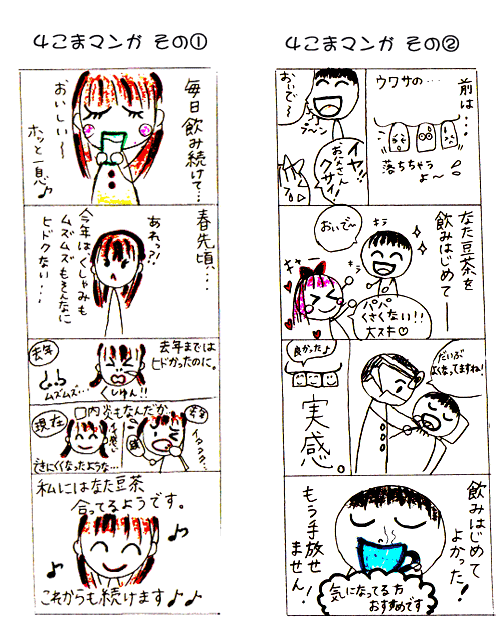 4こまマンガ その①
毎日飲み続けて…
おいしい〜
ホッと一息♪
春先頃…
あれ?!
今年はくしゃみも
ムズムズもそんなに
ヒドクない…
去年
去年までは
ヒドかったのに。
ムズムズ…
くしゅん!!
現在
口内炎もなんだか
去年
できにくくなったような…
私にはなた豆茶
合ってるようです。
これからも続けます♪♪
4こまマンガ その②
前は…
ウワサの…
落ちちゃう
よ〜
おいで〜
イヤ!!
おクチ
クサイ!
なた豆茶を
飲みはじめて
おいで〜
キラ
キラ
キャー
パパ
くさくない!!
大スキ♡
だいぶ
よくなってますね!
良かった♪
実感。
飲みはじめて
よかった!
もう手放せ
ません!
気になってる方
おすすめです